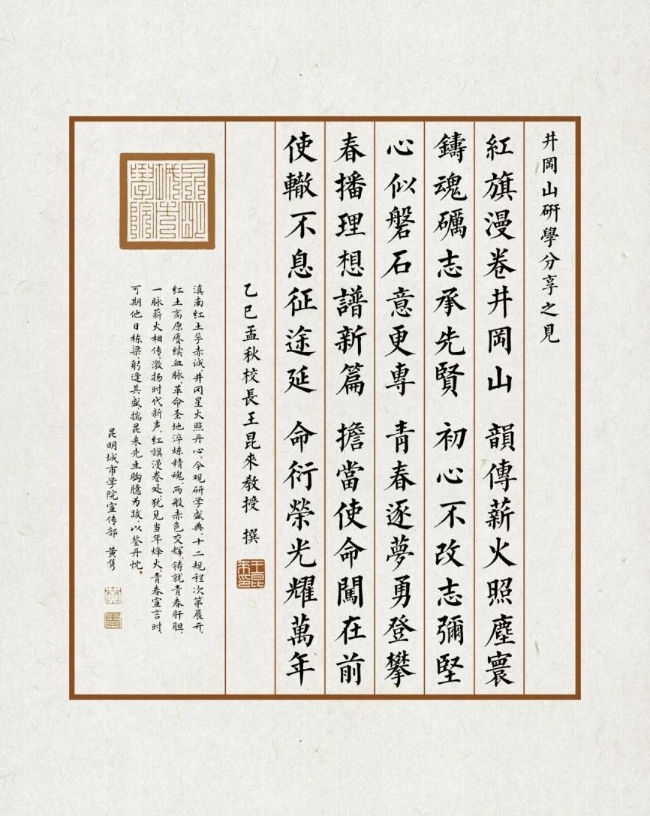 井岡山研學分享之見
紅旗漫卷井岡山 韻傳薪火照塵寰
鑄魂礪志承先賢 初心不改志彌堅
心似磐石意更專 青春逐夢勇登攀
春播理想譜新篇 擔當使命闖在前
使轍不息征途延 命衍榮光耀萬年
乙巳孟秋校長王昆來教授 撰
昆明城市學院
滇南红土孕赤诚,井冈星火照丹心。今观研学盛典,十二规程次第展开,
红土高原赓续血脉,革命圣地淬炼精魂,两般赤色交辉,铸就青春肝胆
一脉薪火相传,激扬时代新声。红旗漫卷处,犹见当年烽火,青春宣言时,
可期他日栋梁。躬逢其盛,揣昆来先生胸臆为跋,以鉴丹忱。
昆明城市学院宣传部 黄隽